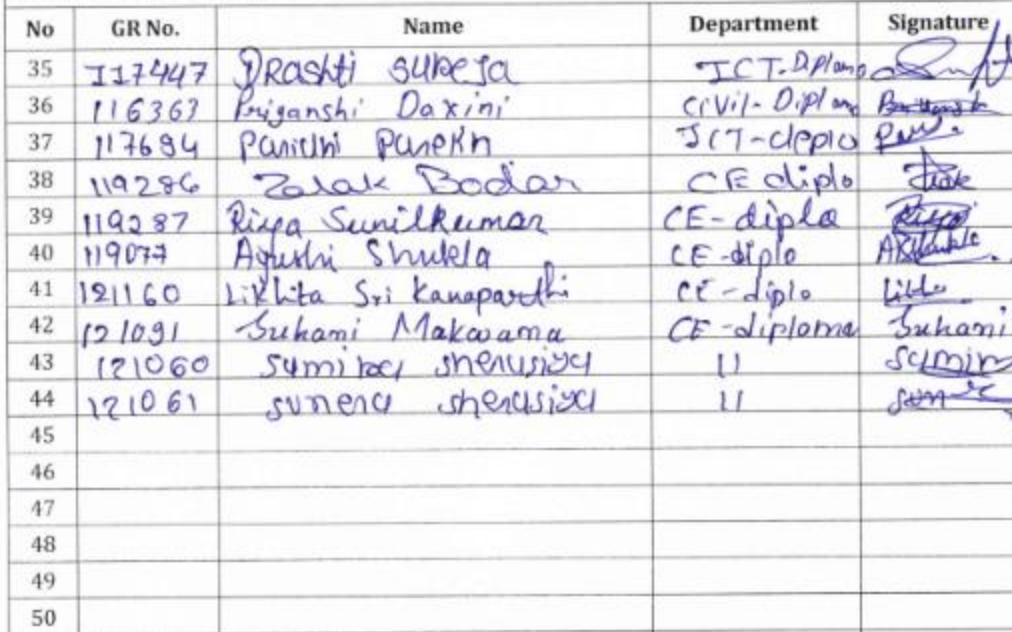 No GR No. Name Department Signature
35 117447 Drashti Sureja ICT-Diploma
36 116363 Priyanshi Daxini Civil-Diplom
37 117694 Panidhi Parekh ICT-diplo
38 119286 Zalak Bodar CE diplo
39 119287 Riya Sunilkumar CE-diplo Riya
40 119077 Ayushi Shukla CE-diplo
41 121160 Likhita Sri Kanaparthi CE-diplo
42 121091 Suhani Makwama CE-diploma Suhani
43 121060 Sumiraa sherusiya 11
44 121061 sunera sherasiya 11
45
46
47
48
49
50